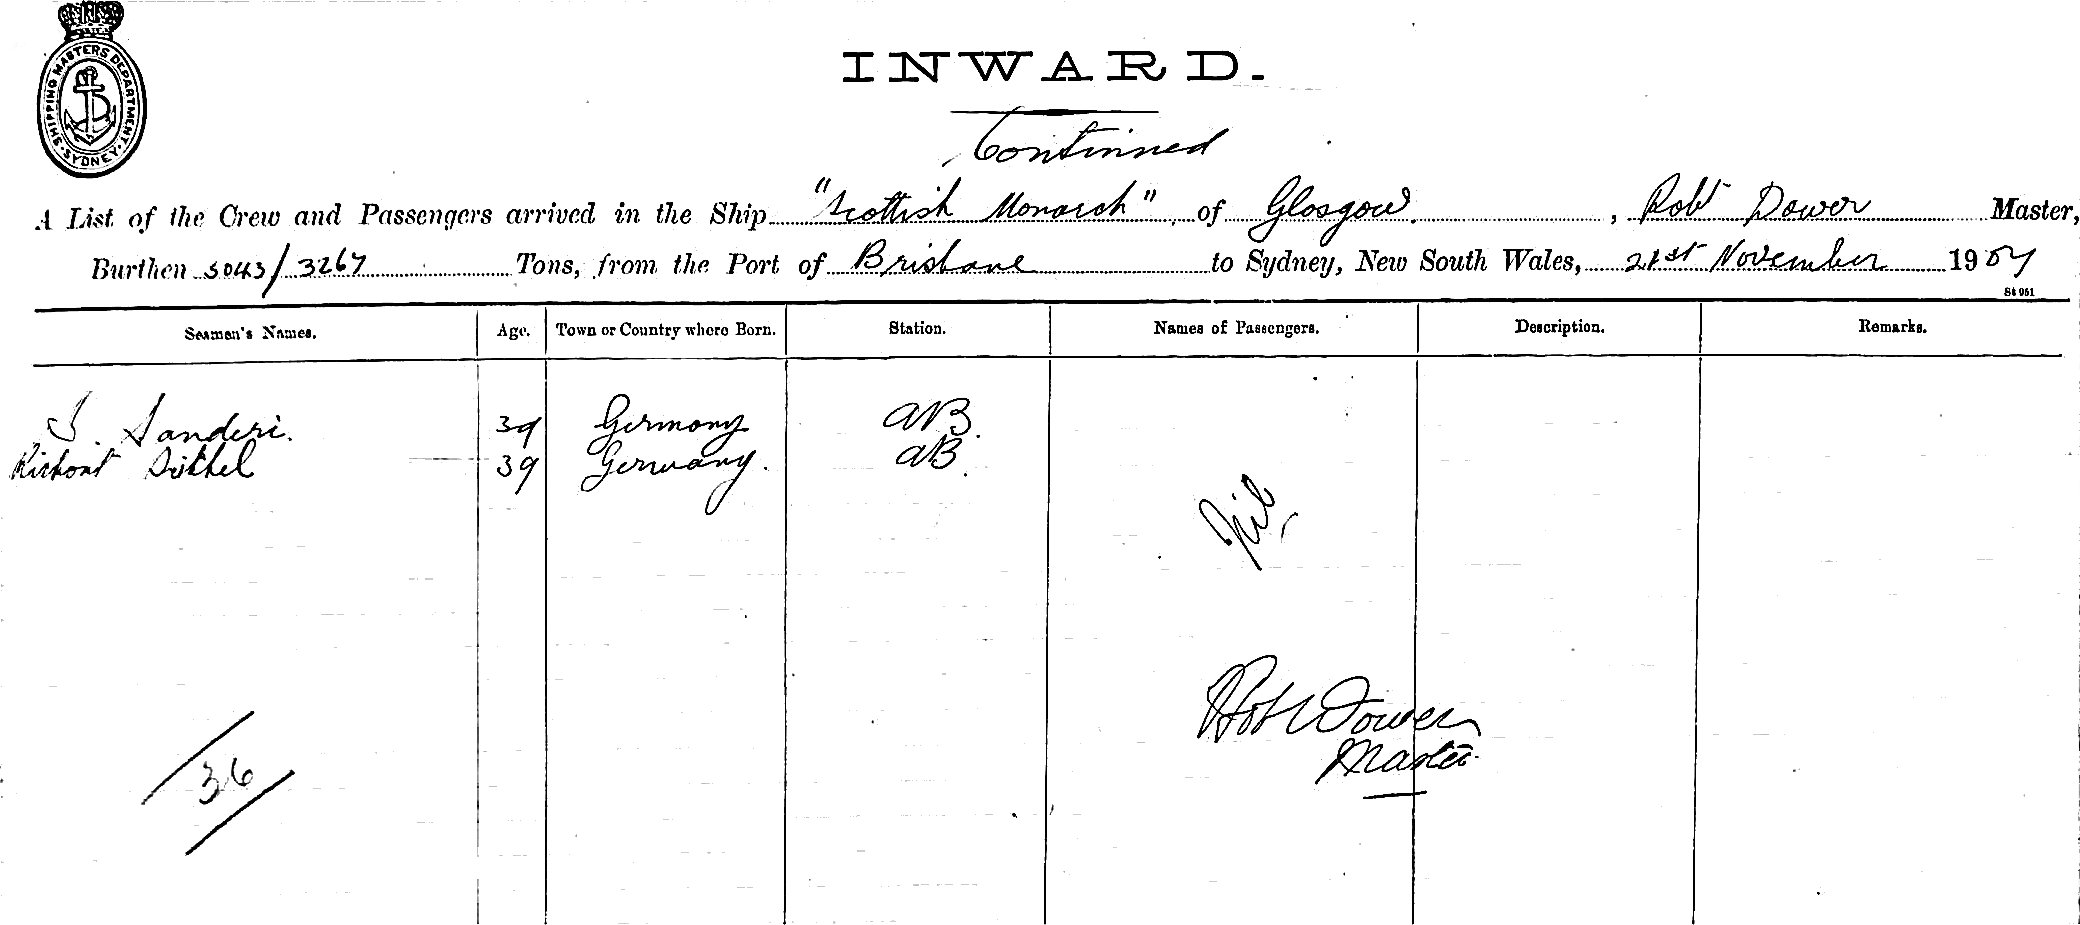 SHIPPING MASTERS DEPARTMENT. SYDNEY.
INWARD.
Continued
A List of the Crew and Passengers arrived in the Ship "Scottish Monarch", of Glasgow. , Robt Dower Master,
Burthen 5043/3267 Tons, from the Port of Brisbane to Sydney, New South Wales, 21st November 1907
St 961
Seamen's Names. Age. Town or Country where Born. Station. Names of Passengers. Description. Remarks.
Sanderi. 39 Germany AB.
39 Germany. AB.
Nil,
Robt Dower
Master
36